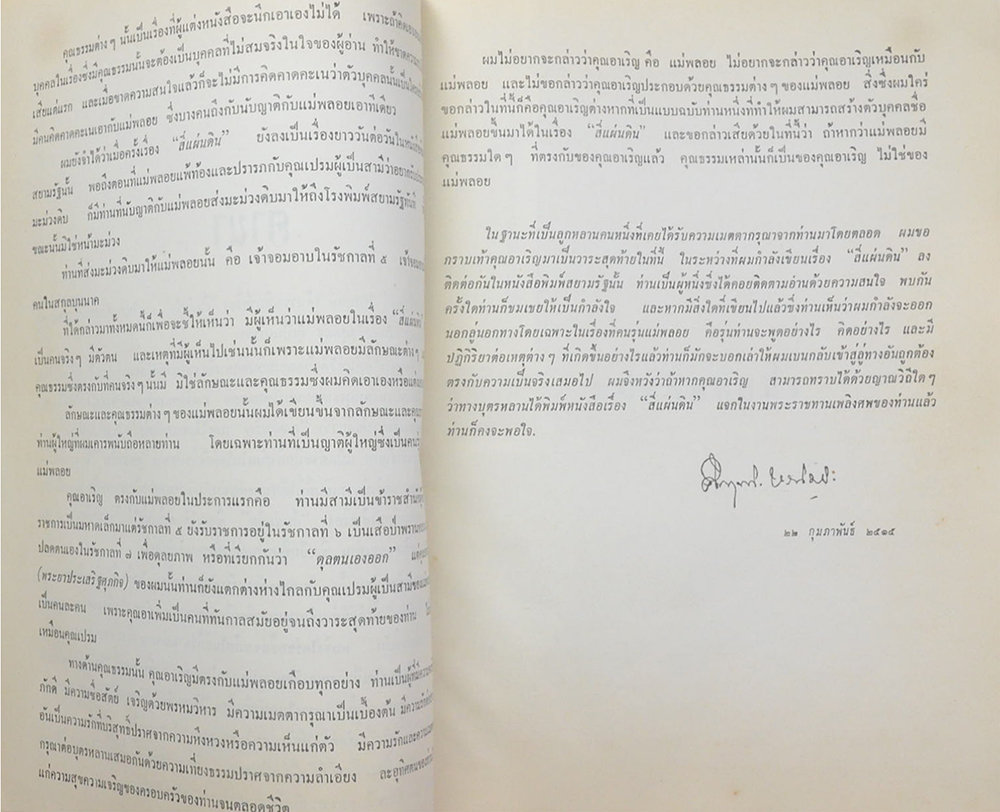 คุณธรรมต่าง ๆ นั้นเป็นเรื่องที่ผู้แต่งหนังสือจะนึกเอาเองไม่ได้ เพราะถ้าคิดเอา
บุคคลในเรื่องซึ่งมีคุณธรรมนั้นจะต้องเป็นบุคคลที่ไม่สมจริงในใจของผู้อ่าน ทำให้ขาดความ
เสียแต่แรก และเมื่อขาดความสนใจแล้วก็จะไม่มีการคิดคาดคะเนว่าตัวบุคคลนั้นเป็นใคร
มีคนคิดคาดคะเนเอากับแม่พลอย ซึ่งบางคนถึงกับนับญาติกับแม่พลอยเอาทีเดียว
ผมยังจำได้ว่าเมื่อครั้งเรื่อง “สี่แผ่นดิน” ยังลงเป็นเรื่องยาววันต่อวันในหนังสือ
สยามรัฐนั้น พอถึงตอนที่แม่พลอยแพ้ท้องและปรารภกับคุณเปรมผู้เป็นสามีว่าอยาก
มะม่วงดิบ ก็มีท่านที่นับญาติกับแม่พลอยส่งมะม่วงดิบมาให้ถึงโรงพิมพ์สยามรัฐทันที
ขณะนั้นมิใช่หน้ามะม่วง
ท่านที่ส่งมะม่วงดิบมาให้แม่พลอยนั้น คือ เจ้าจอมอาบในรัชกาลที่ ๕
คนในสกุลบุนนาค
ที่ได้กล่าวมาทั้งหมดนี้ก็เพื่อจะชี้ให้เห็นว่า มีผู้เห็นว่าแม่พลอยในเรื่อง “สี่แผ่นดิน”
เป็นคนจริง ๆ มีตัวตน และเหตุที่มีผู้เห็นไปเช่นนั้นก็เพราะแม่พลอยมีลักษณะต่าง ๆ
คุณธรรมซึ่งตรงกับที่คนจริง ๆ นั้นมี มิใช่ลักษณะและคุณธรรมซึ่งผมคิดเอาเองหรือ
ลักษณะและคุณธรรมต่าง ๆ ของแม่พลอยนั้นผมได้เขียนขึ้นจากลักษณะและ
ท่านผู้ใหญ่ที่ผมเคารพนับถือหลายท่าน โดยเฉพาะท่านที่เป็นญาติผู้ใหญ่ซึ่งเป็นคน
แม่พลอย
คุณอาเริญ ตรงกับแม่พลอยในประการแรกคือ ท่านมีสามีเป็นข้าราชสำนัก
ราชการเป็นมหาดเล็กมาแต่รัชกาลที่ ๕ ยังรับราชการอยู่ในรัชกาลที่ ๖ เป็นเสือป่า
ปลดตนเองในรัชกาลที่ ๗ เพื่อดุลยภาพ หรือที่เรียกกันว่า “ดุลตนเองออก”
(พระยาประเสริฐศุภกิจ) ของผมนั้นท่านก็ยังแตกต่างห่างไกลกับคุณเปรมผู้เป็นสามีของ
เป็นคนละคน เพราะคุณอาเพิ่มเป็นคนที่ทันกาลสมัยอยู่จนถึงวาระสุดท้ายของท่าน
เหมือนคุณเปรม
ทางด้านคุณธรรมนั้น คุณอาเริญมีตรงกับแม่พลอยเกือบทุกอย่าง ท่านเป็นผู้ที่มีความ
ภักดี มีความซื่อสัตย์ เจริญด้วยพรหมวิหาร มีความเมตตากรุณาเป็นเบื้องต้น มีความ
อันเป็นความรักที่บริสุทธิ์ปราศจากความหึงหวงหรือความเห็นแก่ตัว มีความรักและความ
กรุณาต่อบุตรหลานเสมอกันด้วยความเที่ยงธรรมปราศจากความลำเอียง และอุทิศตน
แก่ความสุขความเจริญของครอบครัวของท่านจนตลอดชีวิต
ผมไม่อยากจะกล่าวว่าคุณอาเริญ คือ แม่พลอย ไม่อยากจะกล่าวว่าคุณอาเริญเหมือนกับ
แม่พลอย และไม่ขอกล่าวว่าคุณอาเริญประกอบด้วยคุณธรรมต่าง ๆ ของแม่พลอย สิ่งซึ่งผมใคร่
ขอกล่าวในที่นี้ก็คือคุณอาเริญต่างหากที่เป็นแบบฉบับท่านหนึ่งที่ทำให้ผมสามารถสร้างตัวบุคคลชื่อ
แม่พลอยขึ้นมาได้ในเรื่อง “สี่แผ่นดิน” และขอกล่าวเสียด้วยในที่นี้ว่า ถ้าหากว่าแม่พลอยมี
คุณธรรมใด ๆ ที่ตรงกับของคุณอาเริญแล้ว คุณธรรมเหล่านั้นก็เป็นของคุณอาเริญ ไม่ใช่ของ
แม่พลอย
ในฐานะที่เป็นลูกหลานคนหนึ่งที่เคยได้รับความเมตตากรุณาจากท่านมาโดยตลอด ผมขอ
กราบเท้าคุณอาเริญมาเป็นวาระสุดท้ายในที่นี้ ในระหว่างที่ผมกำลังเขียนเรื่อง “สี่แผ่นดิน” ลง
ติดต่อกันในหนังสือพิมพ์สยามรัฐนั้น ท่านเป็นผู้หนึ่งซึ่งได้คอยติดตามอ่านด้วยความสนใจ พบกัน
ครั้งใดท่านก็ชมเชยให้เป็นกำลังใจ และหากมีสิ่งใดที่เขียนไปแล้วซึ่งท่านเห็นว่าผมกำลังจะออก
นอกลู่นอกทางโดยเฉพาะในเรื่องที่คนรุ่นแม่พลอย คือรุ่นท่านจะพูดอย่างไร คิดอย่างไร และมี
ปฏิกิริยาต่อเหตุต่าง ๆ ที่เกิดขึ้นอย่างไรแล้วท่านก็มักจะบอกเล่าให้ผมเบนกลับเข้าสู่ลู่ทางอันถูกต้อง
ตรงกับความเป็นจริงเสมอไป ผมจึงหวังว่าถ้าหากคุณอาเริญ สามารถทราบได้ด้วยญาณวิถีใด ๆ
ว่าทางบุตรหลานได้พิมพ์หนังสือเรื่อง “สี่แผ่นดิน” แจกในงานพระราชทานเพลิงศพของท่านแล้ว
ท่านก็คงจะพอใจ.
๒๒ กุมภาพันธ์ ๒๕๑๕